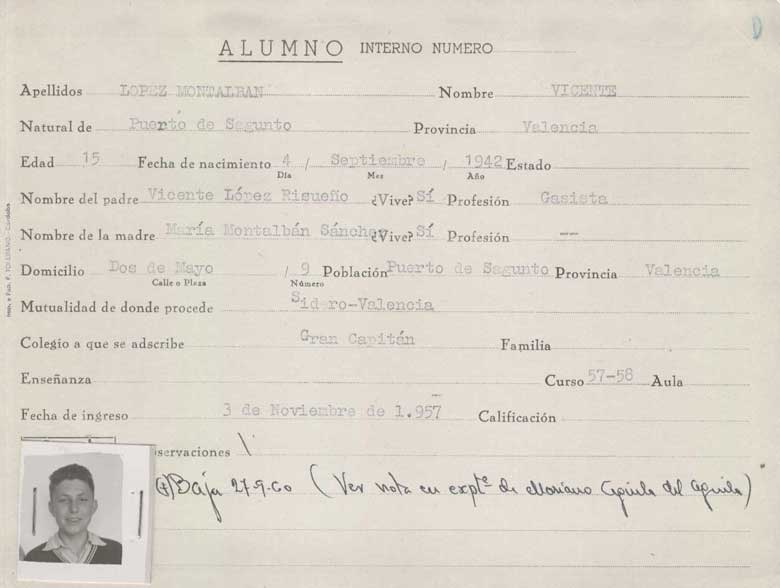 ALUMNO INTERNO NUMERO
Apellidos LOPEZ MONTALBAN Nombre VICENTE
Natural de Puerto de Sagunto Provincia Valencia
Edad 15 Fecha de nacimiento 4 / Septiembre / 1942 Estado
Día Mes Año
Nombre del padre Vicente López Risueño ¿Vive? Sí Profesión Gasista
Nombre de la madre María Montalbán Sánchez ¿Vive? Sí Profesión --
Domicilio Dos de Mayo / 9 Población Puerto de Sagunto Provincia Valencia
Calle o Plaza Número
Mutualidad de donde procede Sidero-Valencia
Colegio a que se adscribe Gran Capitán Familia
Enseñanza Curso 57-58 Aula
Fecha de ingreso 3 de Noviembre de 1.957 Calificación
bservaciones
Baja 27-9-60 (Ver nota en expte de Mariano del Aguila)